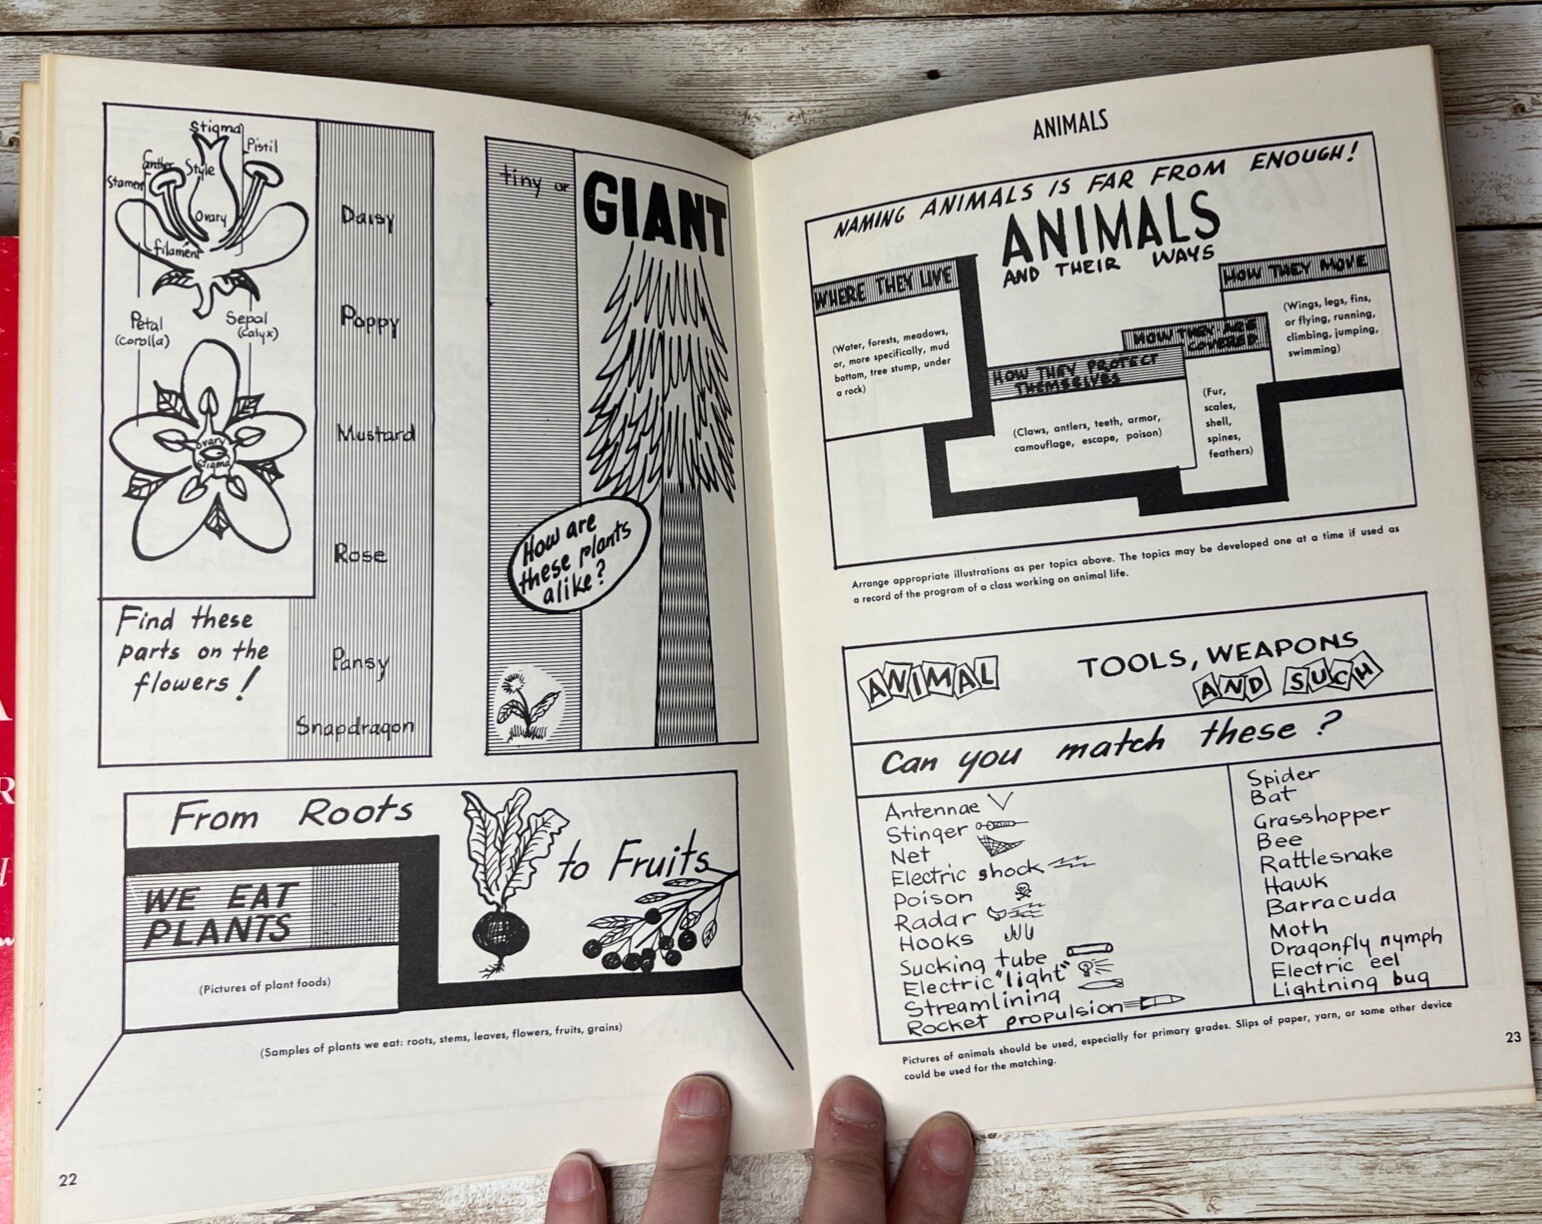 Stigma
Pistil
Anther
Style
Stamen
Ovary
filament
Petal
(corolla)
Sepal
(calyx)
ovary
Stigma
Daisy
Poppy
Mustard
Rose
Pansy
Snapdragon
Find these
parts on the
flowers!
tiny or
GIANT
How are
these plants
alike?
From Roots
to Fruits
WE EAT
PLANTS
(Pictures of plant foods)
(Samples of plants we eat: roots, stems, leaves, flowers, fruits, grains)
22
ANIMALS
NAMING ANIMALS IS FAR FROM ENOUGH!
ANIMALS
AND THEIR WAYS
WHERE THEY LIVE
(Water, forests, meadows,
or, more specifically, mud
bottom, tree stump, under
a rock)
HOW THEY PROTECT
THEMSELVES
(Claws, antlers, teeth, armor,
camouflage, escape, poison)
HOW THEY ARE
COVERED
(Fur,
scales,
shell,
spines,
feathers)
HOW THEY MOVE
(Wings, legs, fins,
or flying, running,
climbing, jumping,
swimming)
Arrange appropriate illustrations as per topics above. The topics may be developed one at a time if used as
a record of the program of a class working on animal life.
ANIMAL TOOLS, WEAPONS
AND SUCH
Can you match these?
Antennae
Stinger
Net
Electric shock
Poison
Radar
Hooks
Sucking tube
Electric "light"
Streamlining
Rocket propulsion
Spider
Bat
Grasshopper
Bee
Rattlesnake
Hawk
Barracuda
Moth
Dragonfly nymph
Electric eel
Lightning bug
Pictures of animals should be used, especially for primary grades. Slips of paper, yarn, or some other device
could be used for the matching.
23